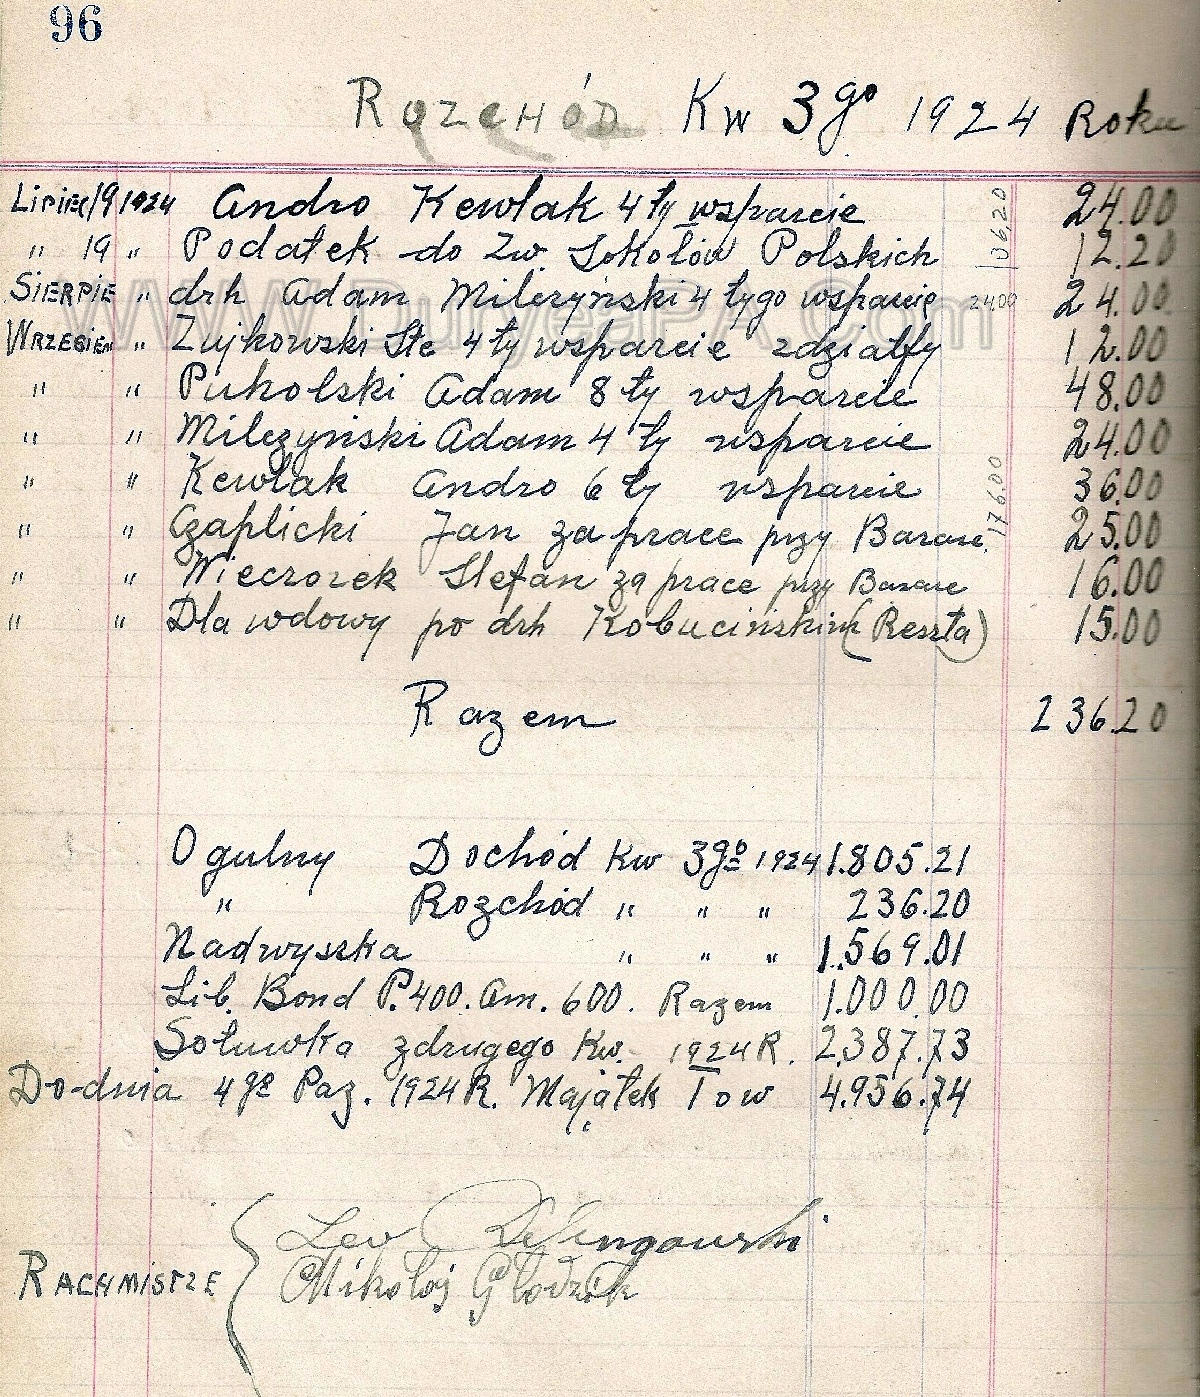 96
Rozchód Kw 3go 1924 Roku
Lipiec/19 1924 Andro Kewlak 4 ty wsparcie 24.00
" 19 " Podatek do Zw Sokołów Polskich 12.20
36.20
Sierpie " drh Adam Milczyński 4 tygo wsparcie 24.00 24.00
Wrzesień " Zujkowski Ste 4 ty wsparcie 12.00
" " Puholski Adam 8 ty wsparcie 48.00
" " Milczyński Adam 4 ty wsparcie 24.00
" " Kewlak Andro 6 ty wsparcie 36.00
176.00
" " Czaplicki Jan za prace przy Bazarze 25.00
" " Wieczorek Stefan za prace przy Bazare 16.00
" " Dla wdowy po drh Kobucińskim (Reszta) 15.00
Razem 236.20
Ogulny Dochód Kw 3go 1924 1.805.21
" Rozchód " " " 236.20
Nadwyszka " " " 1.569.01
Lib. Bond P. 400. Am. 600. Razem 1.000.00
Gotuwka zdrugego Kw. 1924 R. 2,387.73
Do-dnia 4go Paz. 1924 R. Majątek Tow 4.956.74
Leo
Rachmistze
Mikołaj Głodzik
www.DuryeaPA.com